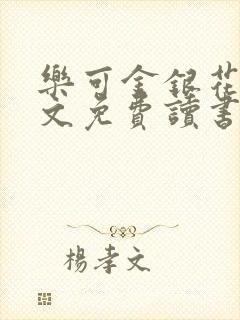 樂可金銀花
文免費讀書
楊孝文